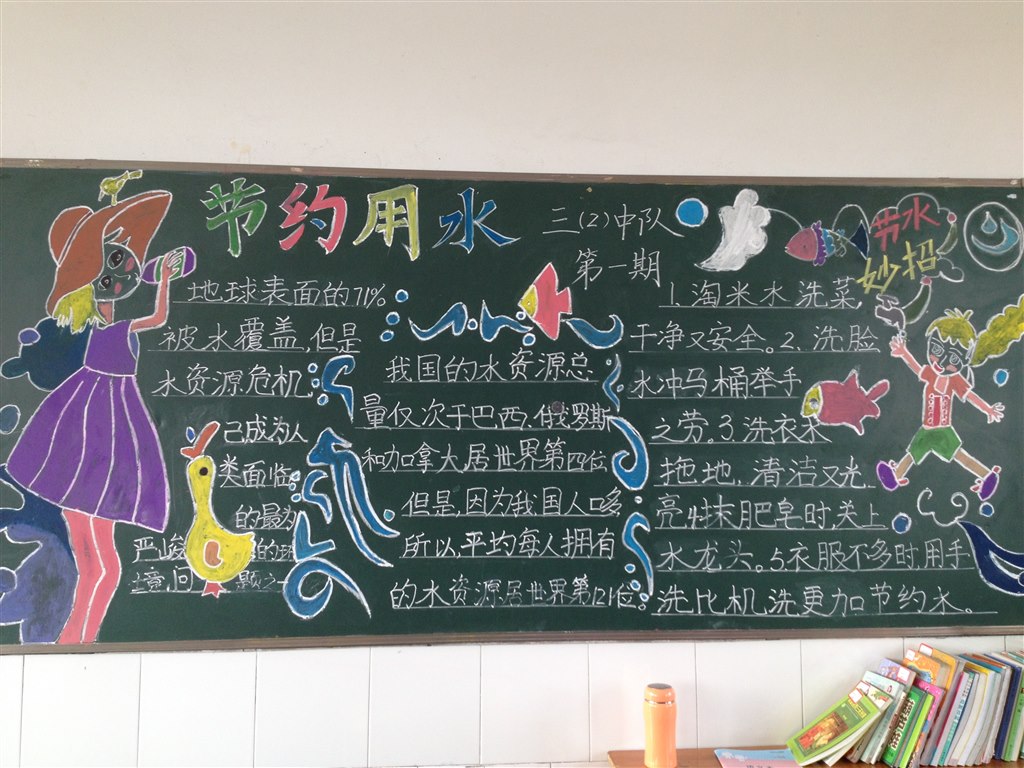 节约用水
三(2)中队
第一期
地球表面的71%
被水覆盖,但是
水资源危机
己成为人
类面临
的最为
严峻的环
境问题之一
我国的水资源总
量仅次于巴西.俄罗斯
和加拿大,居世界第四位
但是,因为我国人口多
所以,平均每人拥有
的水资源居世界第121位
节水
妙招
1.淘米水洗菜
干净又安全。2.洗脸
水冲马桶举手
之劳。3.洗衣水
拖地,清洁又光
亮.4.抹肥皂时,关上
水龙头。5.衣服不多时,用手
洗比机洗更加节约水。